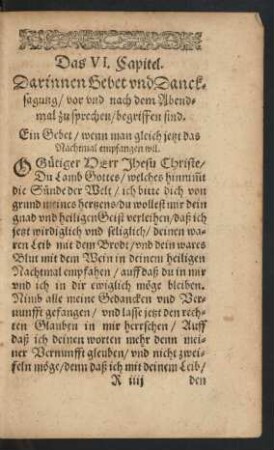 Das VI. Capitel.
Darinnen Gebet vnd Danck-
sagung/ vor vnd nach dem Abend-
mal zu sprechen/ begriffen sind.
Ein Gebet/ wenn man gleich jetzt das
Nachtmal empfangen wil.
O Gütiger HErr Jhesu Christe/
Du Lamb Gottes/ welches hinnimit
die Sünde der Welt/ ich bitte dich von
grund meines hertzens/ du wollest mir dein
gnad vnd heiligen Geist verleihen/ daß ich
jetzt wirdiglich vnd seliglich/ deinen wa-
ren Leib mit dem Brodt/ vnd dein wares
Blut mit dem Wein in deinem heiligen
Nachtmal empfahen/ auff daß du in mir
vnd ich in dir ewiglich möge bleiben.
Nimb alle meine Gedancken vnd Ver-
nunfft gefangen/ vnd lasse jetzt den rech-
ten Glauben in mir herrschen/ Auff
daß ich deinen worten mehr denn mei-
ner Vernunfft gleuben/ vnd nicht zwei-
feln möge/ denn daß ich mit deinem Leib/
R iiij den